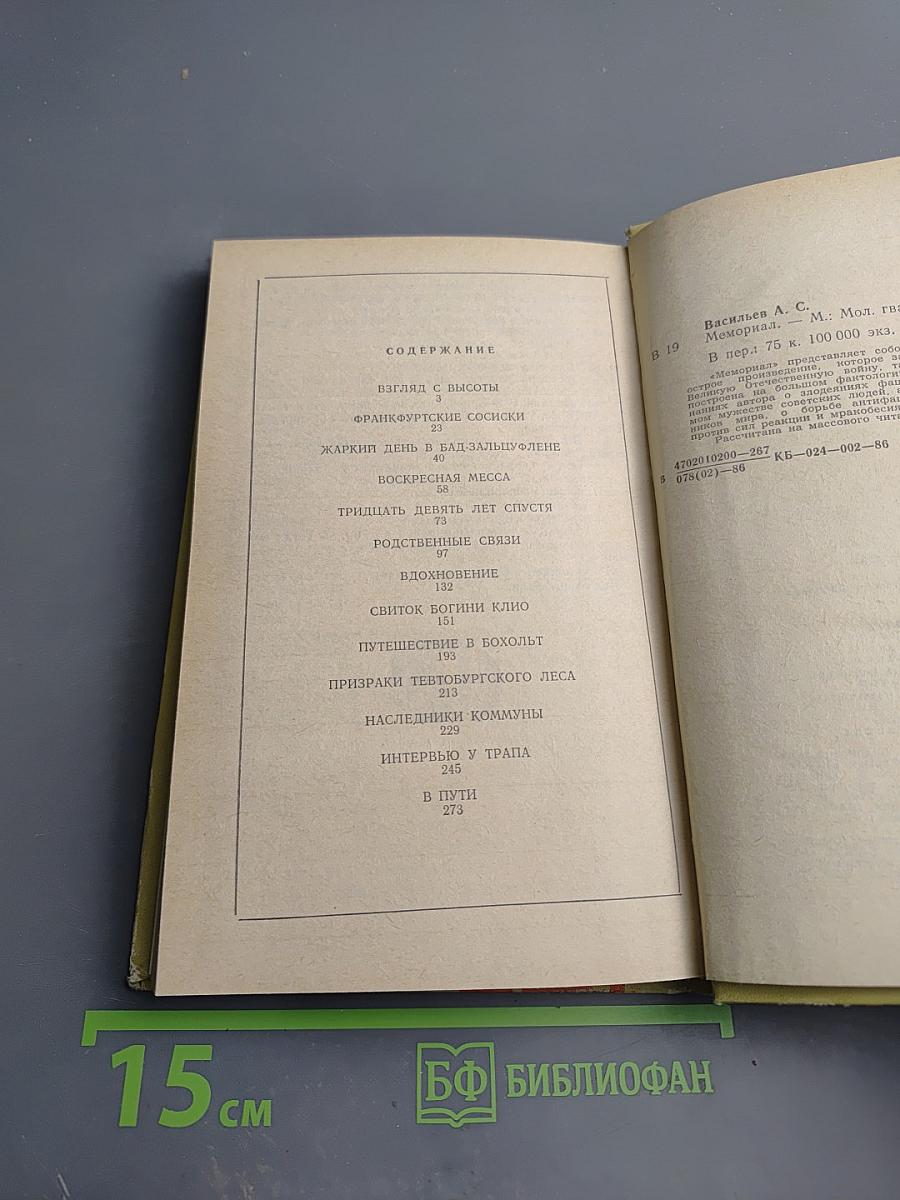 СОДЕРЖАНИЕ
ВЗГЛЯД С ВЫСОТЫ
3
ФРАНКФУРТСКИЕ СОСИСКИ
23
ЖАРКИЙ ДЕНЬ В БАД-ЗАЛЬЦУФЛЕНЕ
40
ВОСКРЕСНАЯ МЕССА
58
ТРИДЦАТЬ ДЕВЯТЬ ЛЕТ СПУСТЯ
73
РОДСТВЕННЫЕ СВЯЗИ
97
ВДОХНОВЕНИЕ
132
СВИТОК БОГИНИ КЛИО
151
ПУТЕШЕСТВИЕ В БОХОЛЬТ
193
ПРИЗРАКИ ТЕВТОБУРГСКОГО ЛЕСА
213
НАСЛЕДНИКИ КОММУНЫ
229
ИНТЕРВЬЮ У ТРАПА
245
В ПУТИ
273
Васильев А. С.
В 19 Мемориал. — М.: Мол. гва
В пер.: 75 к. 100 000 экз.
«Мемориал» представляет собо
острое произведение, которое за
Великую Отечественную войну, та
построена на большом фактологич
наниях автора о злодеяниях фаш
мом мужестве советских людей, а
ников мира, о борьбе антифаш
против сил реакции и мракобесия
Рассчитана на массового чита
4702010200—267
078(02)—86
КБ—024—002—86
15 см
БФ БИБЛИОФАН